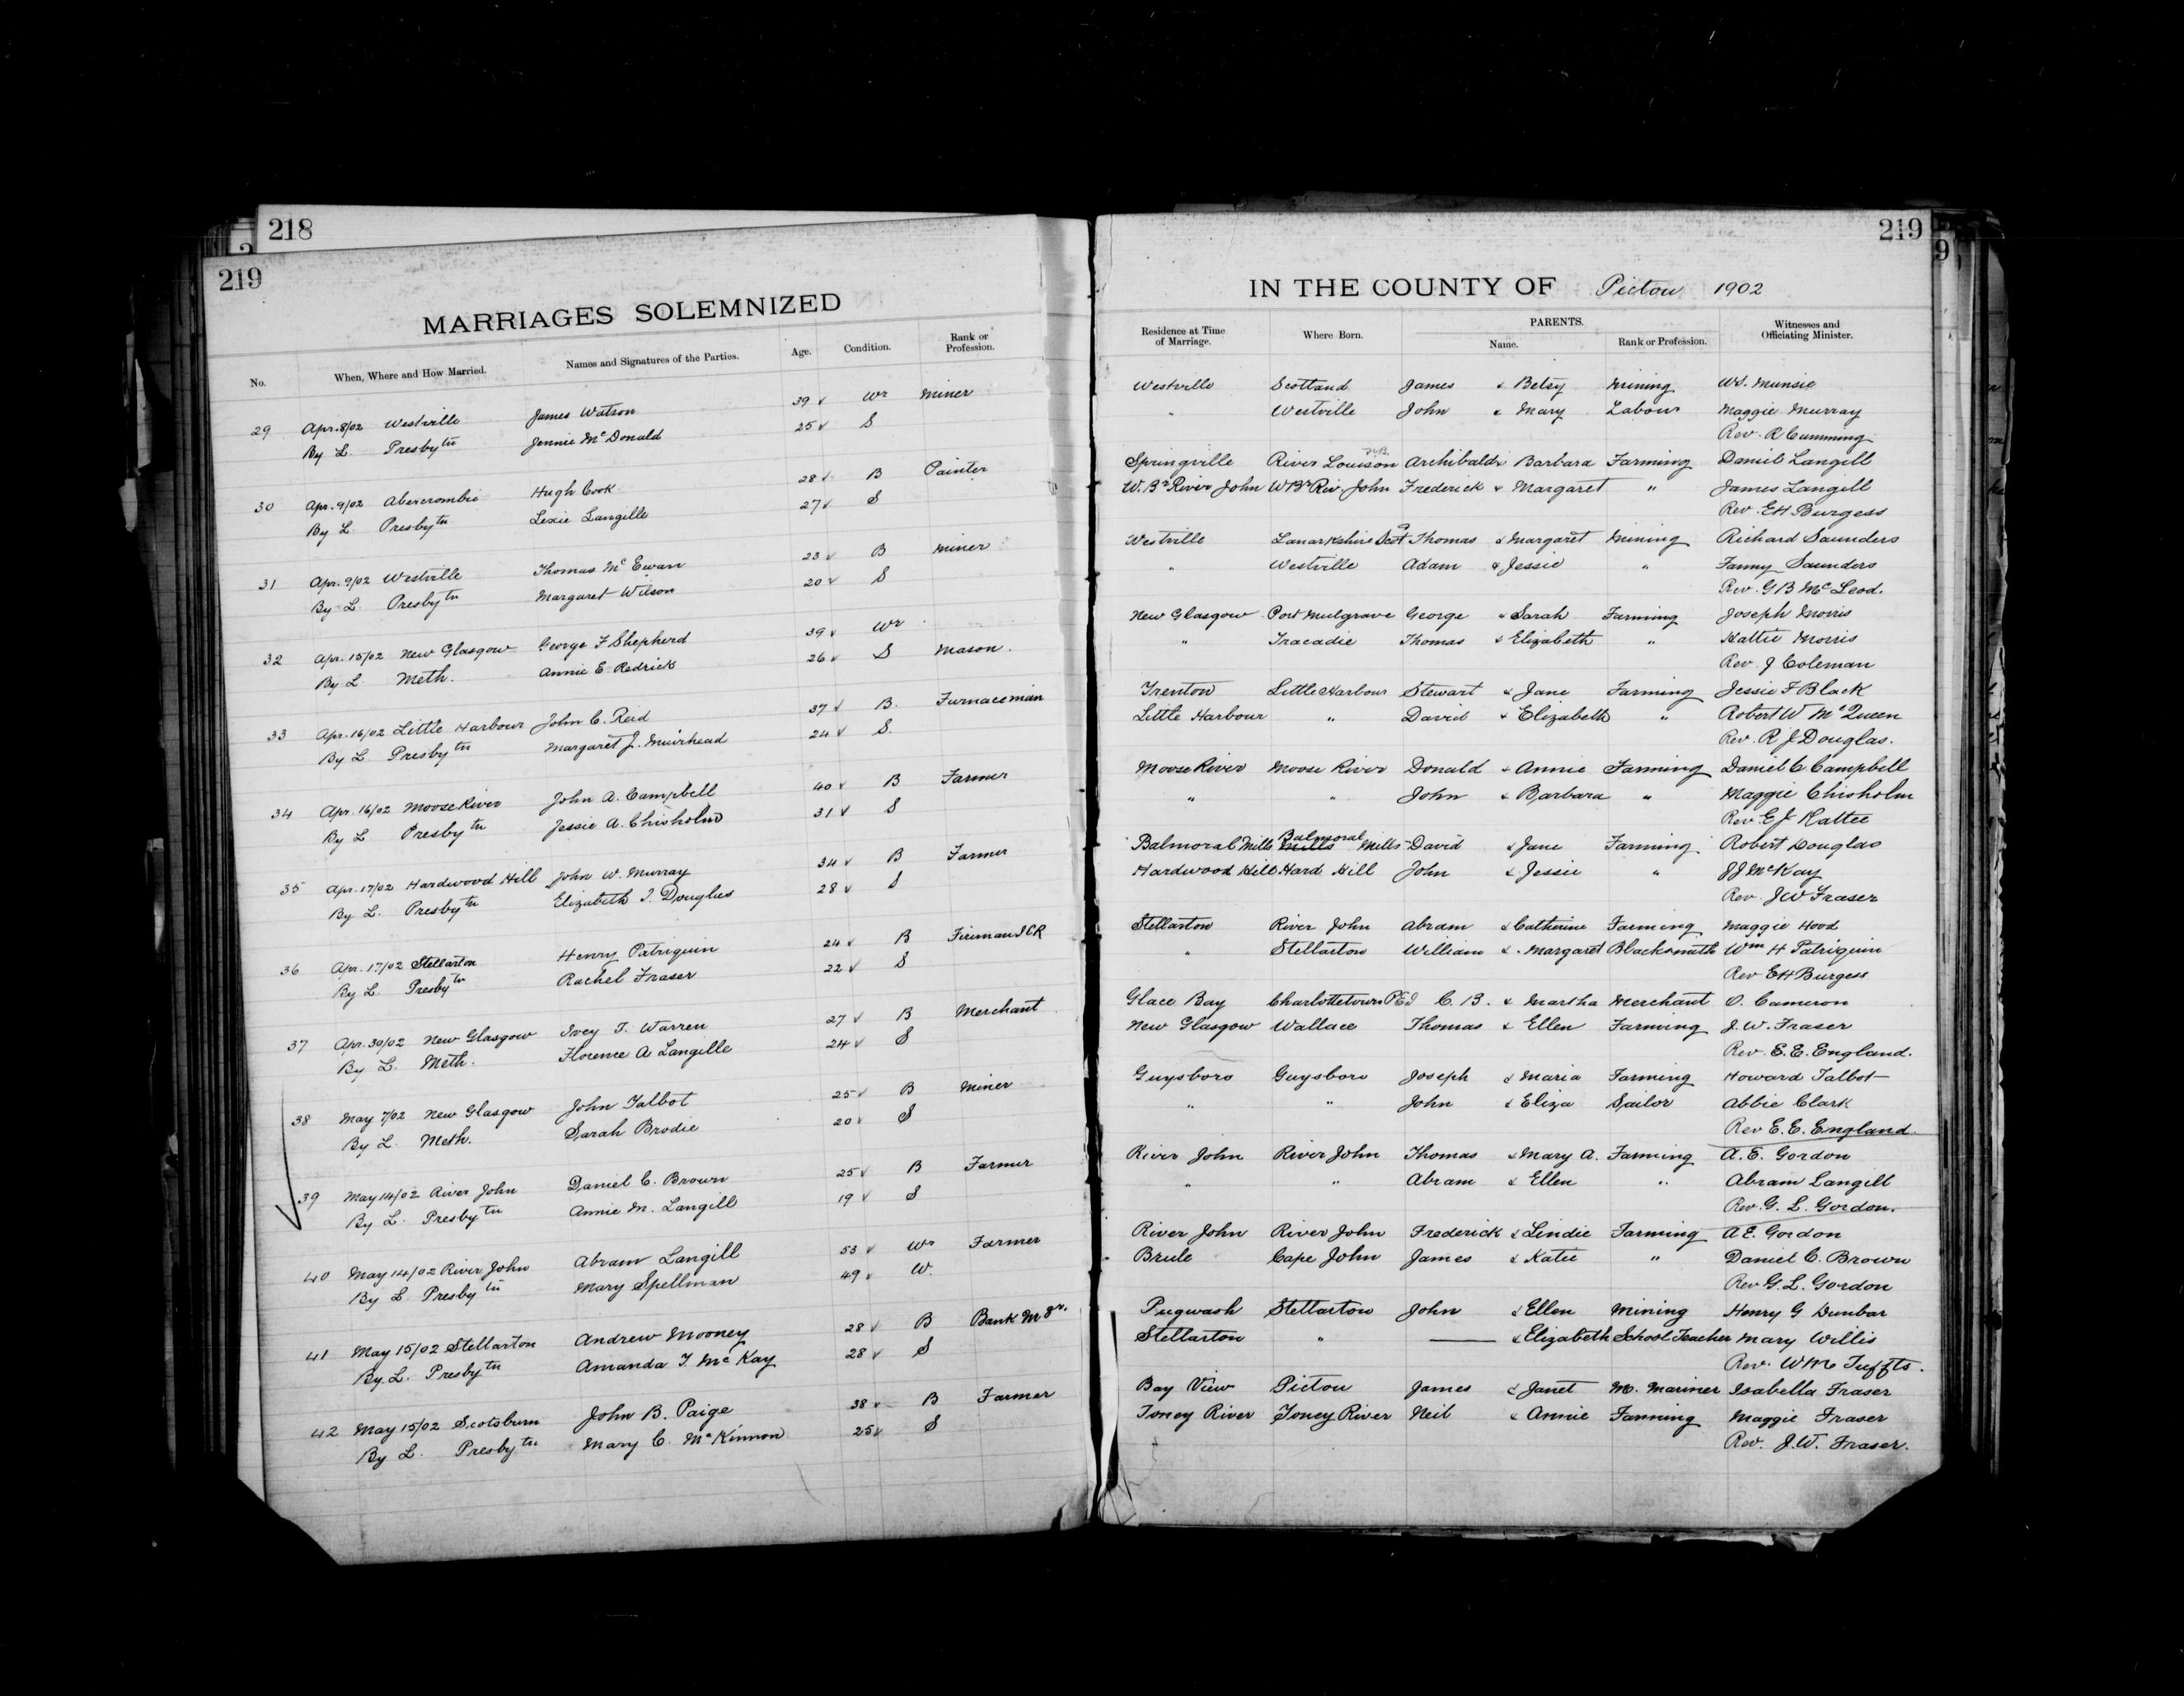 218
219
MARRIAGES SOLEMNIZED
No. When, Where and How Married. Names and Signatures of the Parties. Age. Condition. Rank or Profession.
29 Apr. 8/02 Westville James Watson 39 Wr Miner
By L. Presbytn Jennie McDonald 25 S
30 Apr. 9/02 Abercrombie Hugh Cook 28 B Painter
By L. Presbytn Lexie Langille 27 S
31 Apr. 9/02 Westville Thomas McEwan 23 B Miner
By L. Presbytn Margaret Wilson 20 S
32 Apr. 15/02 New Glasgow George F Shepherd 39 Wr
By L. Meth. Annie E. Redrick 26 S Mason.
33 Apr. 16/02 Little Harbour John C. Reid 37 B. Furnaceman
By L Presbytn Margaret J. Muirhead 24 S.
34 Apr. 16/02 Moose River John A. Campbell 40 B Farmer
By L Presbytn Jessie A. Chisholm 31 S
35 Apr. 17/02 Hardwood Hill John W. Murray 34 B Farmer
By L. Presbytn Elizabeth I. Douglas 28 S
36 Apr. 17/02 Stellarton Henry Patriquin 24 B Fireman ICR
By L. Presbytn Rachel Fraser 22 S
37 Apr. 30/02 New Glasgow Ivey T. Warren 27 B Merchant
By L. Meth. Florence A Langille 24 S
38 May 7/02 New Glasgow John Talbot 25 B Miner
By L. Meth. Sarah Brodie 20 S
39 May 14/02 River John Daniel C. Brown 25 B Farmer
By L. Presbytn Annie M. Langill 19 S
40 May 14/02 River John Abram Langill 53 Wr Farmer
By L Presbytn Mary Spellman 49 W.
41 May 15/02 Stellarton Andrew Mooney 28 B Bank Mgr.
By L. Presbytn Amanda T. McKay 28 S
42 May 15/02 Scotsburn John B. Paige 38 B Farmer
By L. Presbytn Mary C. McKinnon 25 S
219
9
IN THE COUNTY OF Pictou 1902
Residence at Time of Marriage. Where Born. PARENTS. Name. Rank or Profession. Witnesses and Officiating Minister.
Westville Scotland James & Betsy Mining Wd. Munsie
" Westville John & Mary Labour Maggie Murray
Rev. R Cumming
Springville River Louison N.B. Archibald & Barbara Farming Daniel Langill
W. Br River John W Br Riv. John Frederick & Margaret " James Langill
Rev. EH Burgess
Westville Lanarkshire Scot Thomas & Margaret Mining Richard Saunders
" Westville Adam & Jessie " Fanny Saunders
Rev. G B McLeod.
New Glasgow Port Mulgrave George & Sarah Farming Joseph Morris
" Tracadie Thomas & Elizabeth " Hattie Morris
Rev. J Coleman
Trenton Little Harbour Stewart & Jane Farming Jessie F Black
Little Harbour " David & Elizabeth " Robert W McQueen
Rev. R J Douglas.
Moose River Moose River Donald & Annie Farming Daniel C Campbell
" " John & Barbara " Maggie Chisholm
Rev. E J Rattee
Balmoral Mills Balmoral Mills Mills David & Jane Farming Robert Douglas
Hardwood Hill Hard Hill John & Jessie " JJ McKay
Rev. JW Fraser
Stellarton River John Abram & Catherine Farming Maggie Hood
" Stellarton William & Margaret Blacksmith Wm H Patriquin
Rev EH Burgess
Glace Bay Charlottetown PEI C. B. & Martha Merchant O. Cameron
New Glasgow Wallace Thomas & Ellen Farming J. W. Fraser
Rev. E. E. England.
Guysboro Guysboro Joseph & Maria Farming Howard Talbot
" " John & Eliza Sailor Abbie Clark
Rev E. E. England.
River John River John Thomas & Mary A. Farming A. E. Gordon
" " Abram & Ellen " Abram Langill
Rev. G. L. Gordon.
River John River John Frederick & Lindie Farming A E. Gordon
Brule Cape John James & Katie " Daniel C. Brown
Rev G. L. Gordon
Pugwash Stellarton John & Ellen Mining Henry G Dunbar
Stellarton " —— & Elizabeth School Teacher Mary Willis
Rev. W M Tuffts.
Bay View Pictou James & Janet M. Mariner Isabella Fraser
Toney River Toney River Neil & Annie Farming Maggie Fraser
Rev. J.W. Fraser.